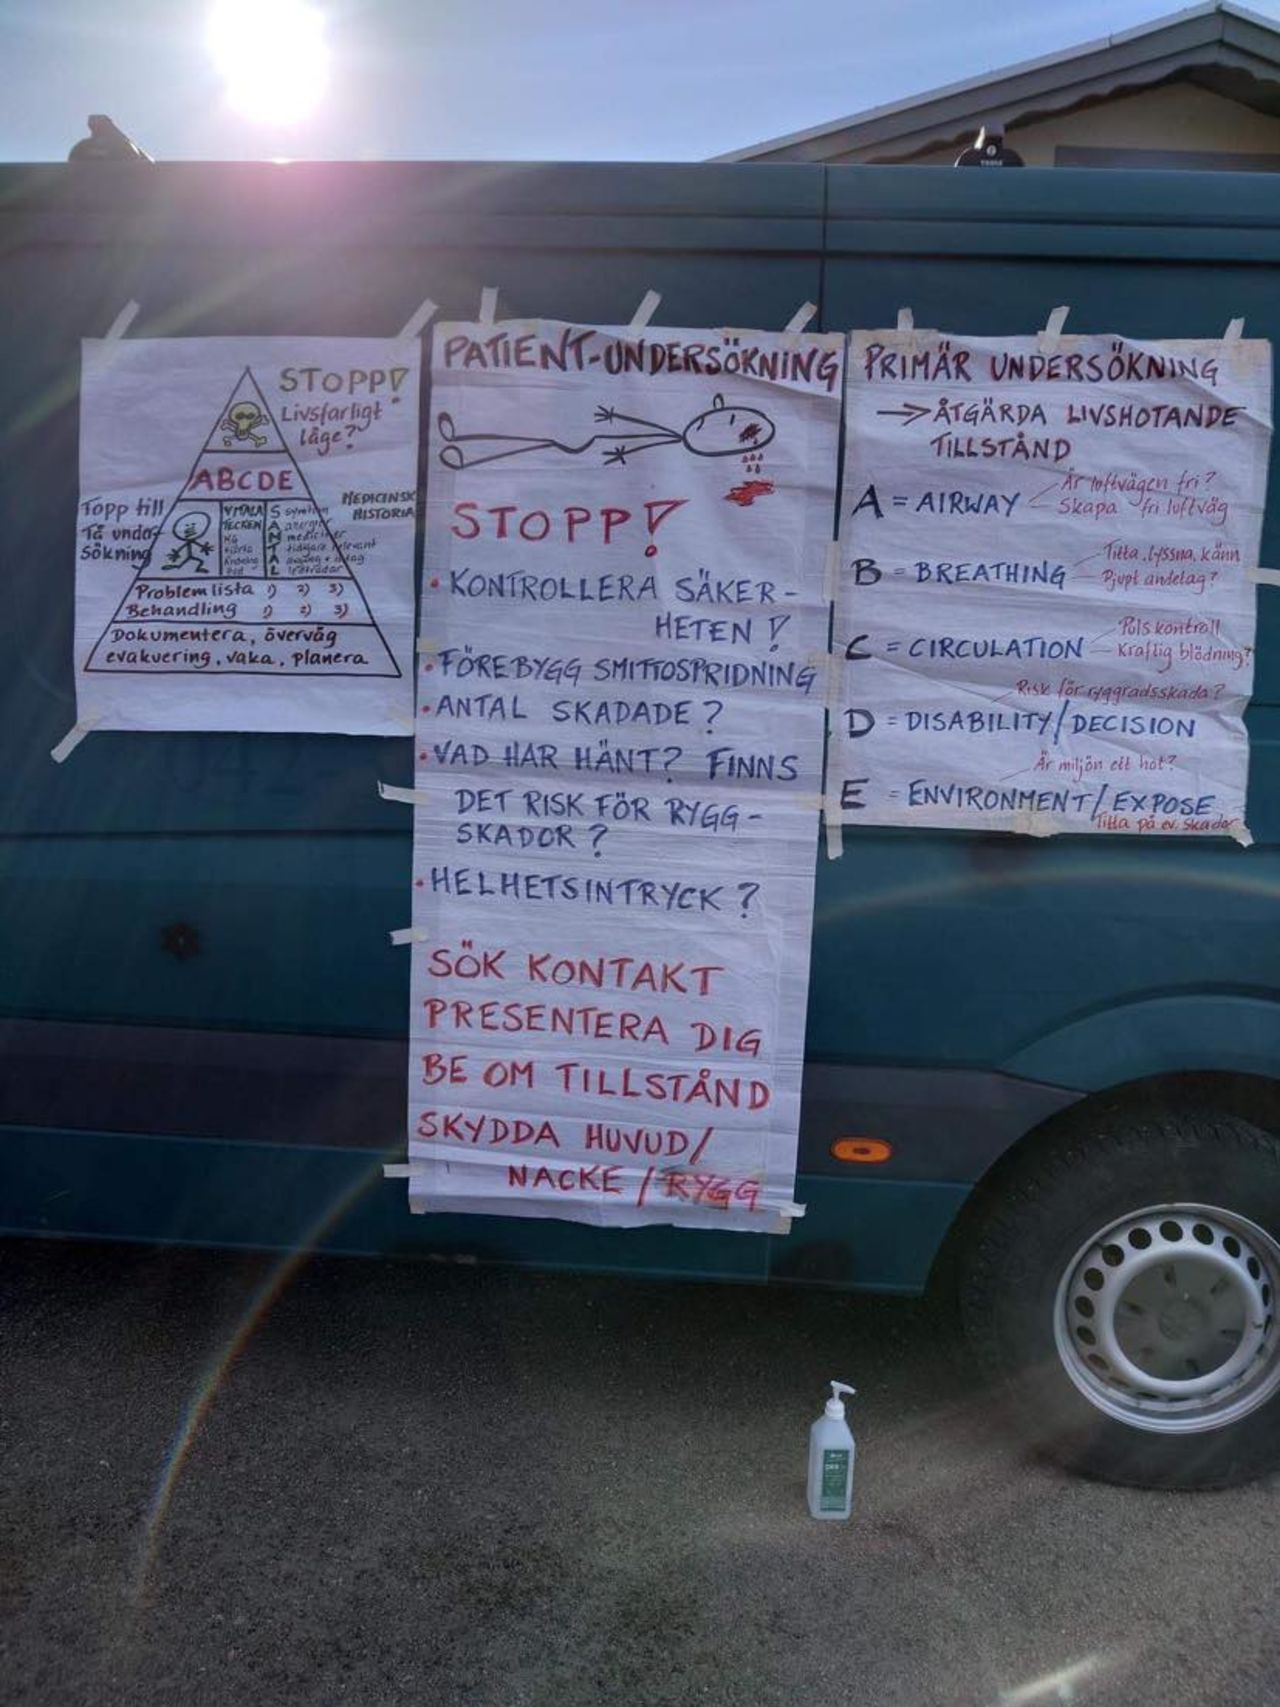 STOPP!
Livsfarligt
läge?
ABCDE
Topp till
Tå under-
sökning
MEDICINSK
HISTORIA
VITALA
TECKEN
S symtom
A allergier
N mediciner
T tidigare relevant
A
L
Problemlista 1) 2) 3)
Behandling 1) 2) 3)
Dokumentera, överväg
evakuering, vaka, planera
PATIENT-UNDERSÖKNING
STOPP!
• KONTROLLERA SÄKER-
HETEN!
• FÖREBYGG SMITTOSPRIDNING
• ANTAL SKADADE?
• VAD HAR HÄNT? FINNS
DET RISK FÖR RYGG-
SKADOR?
• HELHETSINTRYCK?
SÖK KONTAKT
PRESENTERA DIG
BE OM TILLSTÅND
SKYDDA HUVUD/
NACKE / RYGG
PRIMÄR UNDERSÖKNING
→ ÅTGÄRDA LIVSHOTANDE
TILLSTÅND
Är luftvägen fri?
A = AIRWAY
Skapa fri luftväg
Titta, lyssna, känn
B = BREATHING
Djupt andetag?
Puls kontroll
C = CIRCULATION
Kraftig blödning?
Risk för ryggradsskada?
D = DISABILITY/DECISION
Är miljön ett hot?
E = ENVIRONMENT/EXPOSE
Titta på ev. skador